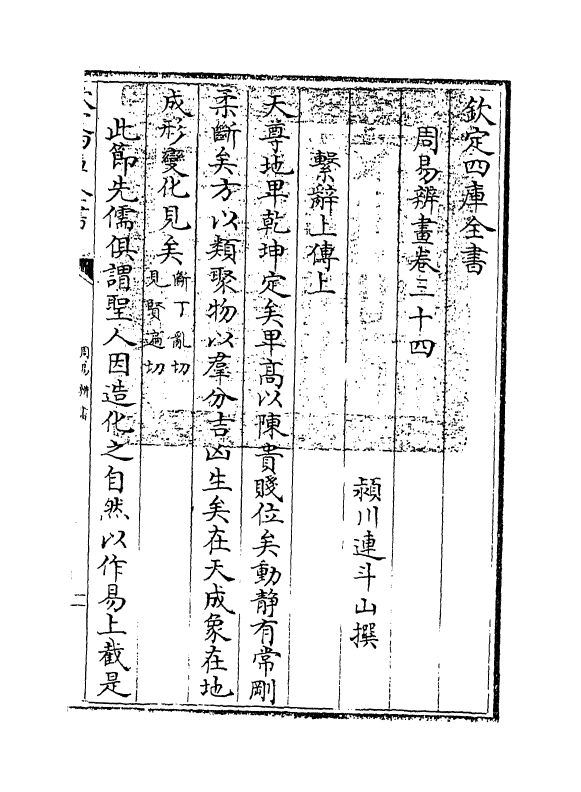 欽定四庫全書
周易辨畫卷三十四
潁川連斗山撰
繫辭上傳上
天尊地卑乾坤定矣卑高以陳貴賤位矣動静有常剛
柔斷矣方以類聚物以羣分吉凶生矣在天成象在地
成形變化見矣斷丁亂切
見賢遍切
此節先儒俱謂聖人因造化之自然以作易上截是
周易辨畫